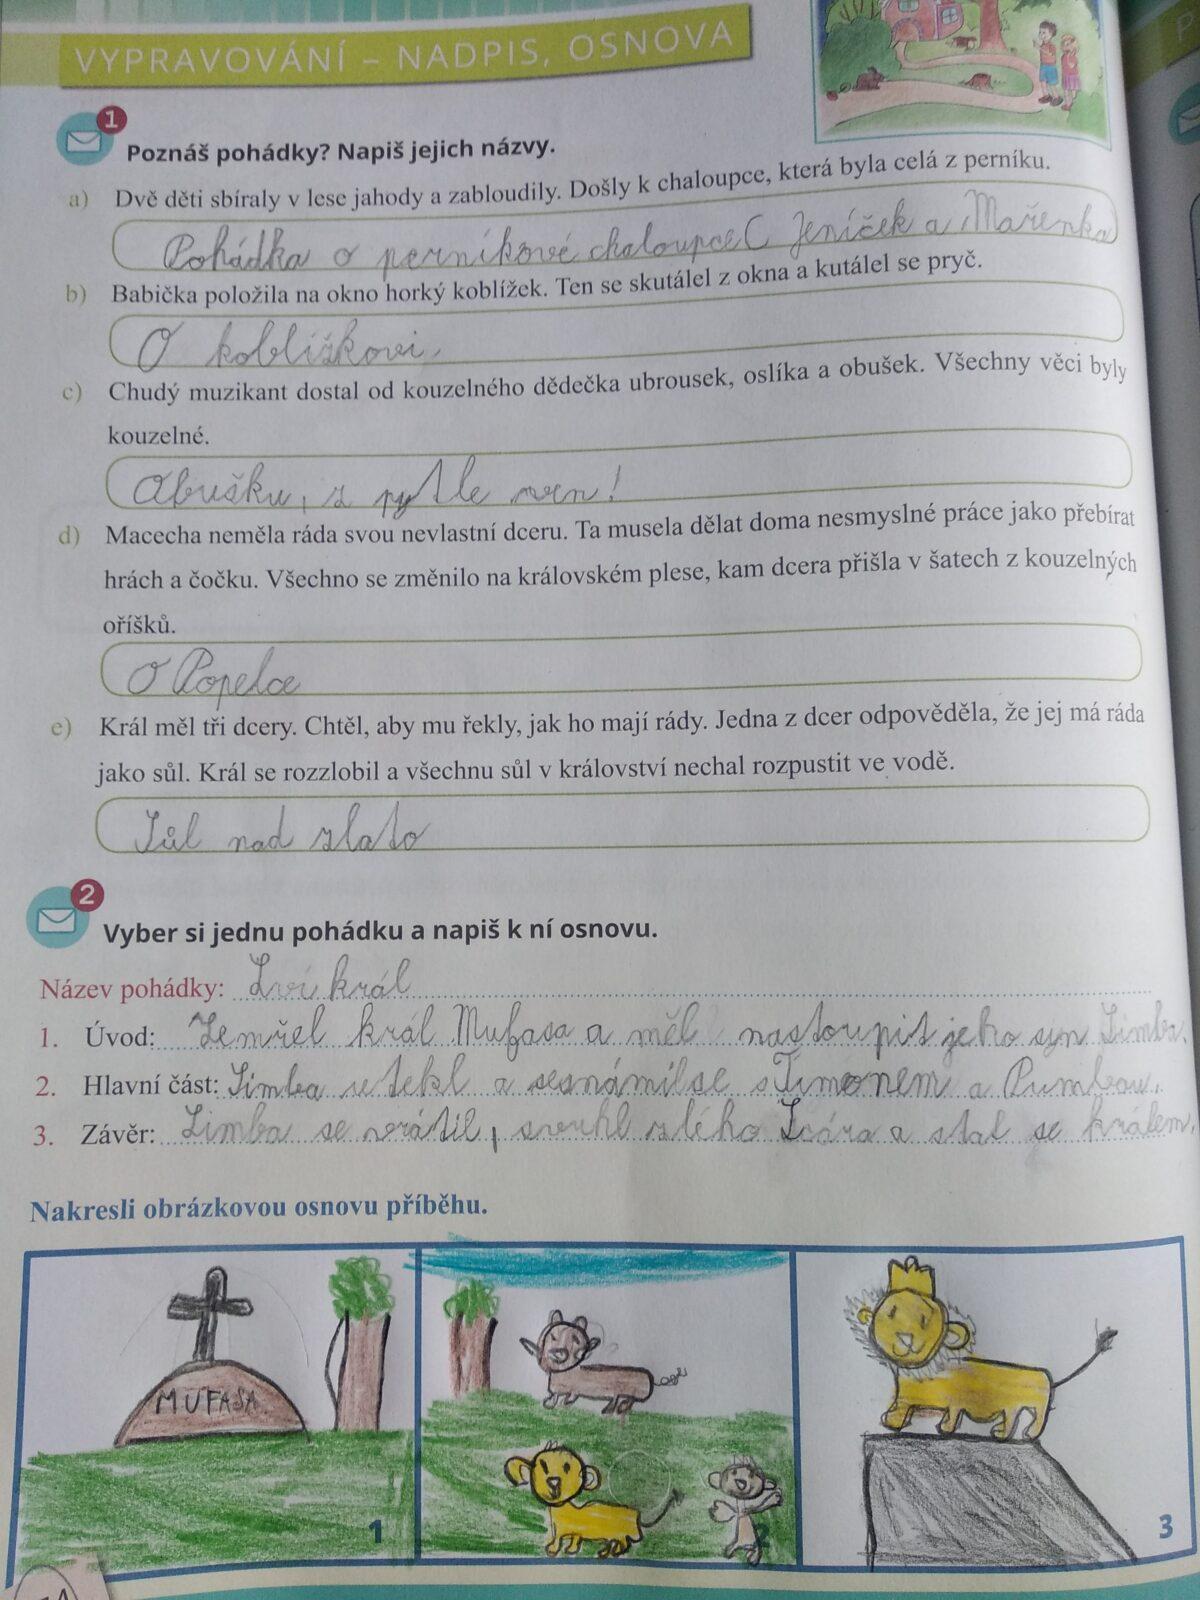 VYPRAVOVÁNÍ – NADPIS, OSNOVA
1
Poznáš pohádky? Napiš jejich názvy.
a) Dvě děti sbíraly v lese jahody a zabloudily. Došly k chaloupce, která byla celá z perníku.
Pohádka o perníkové chaloupce ( Jeníček a Mařenka)
b) Babička položila na okno horký koblížek. Ten se skutálel z okna a kutálel se pryč.
O koblížkovi.
c) Chudý muzikant dostal od kouzelného dědečka ubrousek, oslíka a obušek. Všechny věci byly
kouzelné.
Obušku, z pytle ven!
d) Macecha neměla ráda svou nevlastní dceru. Ta musela dělat doma nesmyslné práce jako přebírat
hrách a čočku. Všechno se změnilo na královském plese, kam dcera přišla v šatech z kouzelných
oříšků.
O Popelce
e) Král měl tři dcery. Chtěl, aby mu řekly, jak ho mají rády. Jedna z dcer odpověděla, že jej má ráda
jako sůl. Král se rozzlobil a všechnu sůl v království nechal rozpustit ve vodě.
Sůl nad zlato
2
Vyber si jednu pohádku a napiš k ní osnovu.
Název pohádky: Lví král
1. Úvod: Zemřel král Mufasa a měl nastoupit jeho syn Simba.
2. Hlavní část: Simba utekl a seznámil se s Timonem a Pumbou.
3. Závěr: Simba se vrátil, svrhl zlého Scára a stal se králem.
Nakresli obrázkovou osnovu příběhu.
MUFASA
1
2
3